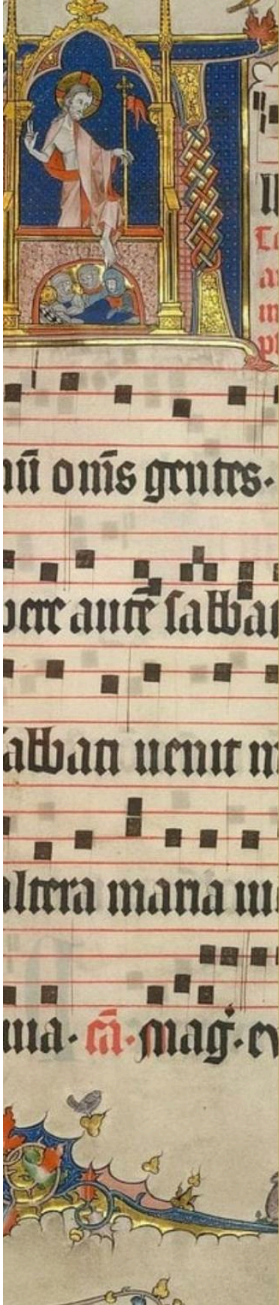 nū om̄s gentes.
pere autē sabba
sabbati uenit m
altera maria ui
uia. cā. mag. ev